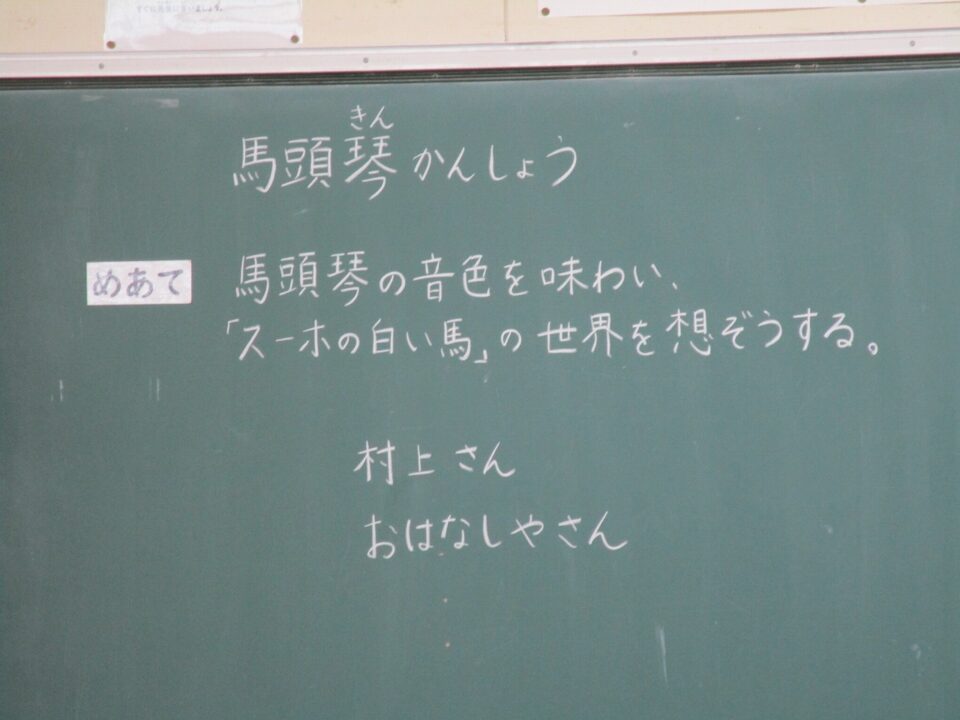 すぐに先生に言いましょう。
馬頭琴かんしょう
きん
めあて 馬頭琴の音色を味わい、
「スーホの白い馬」の世界を想ぞうする。
村上さん
おはなしやさん